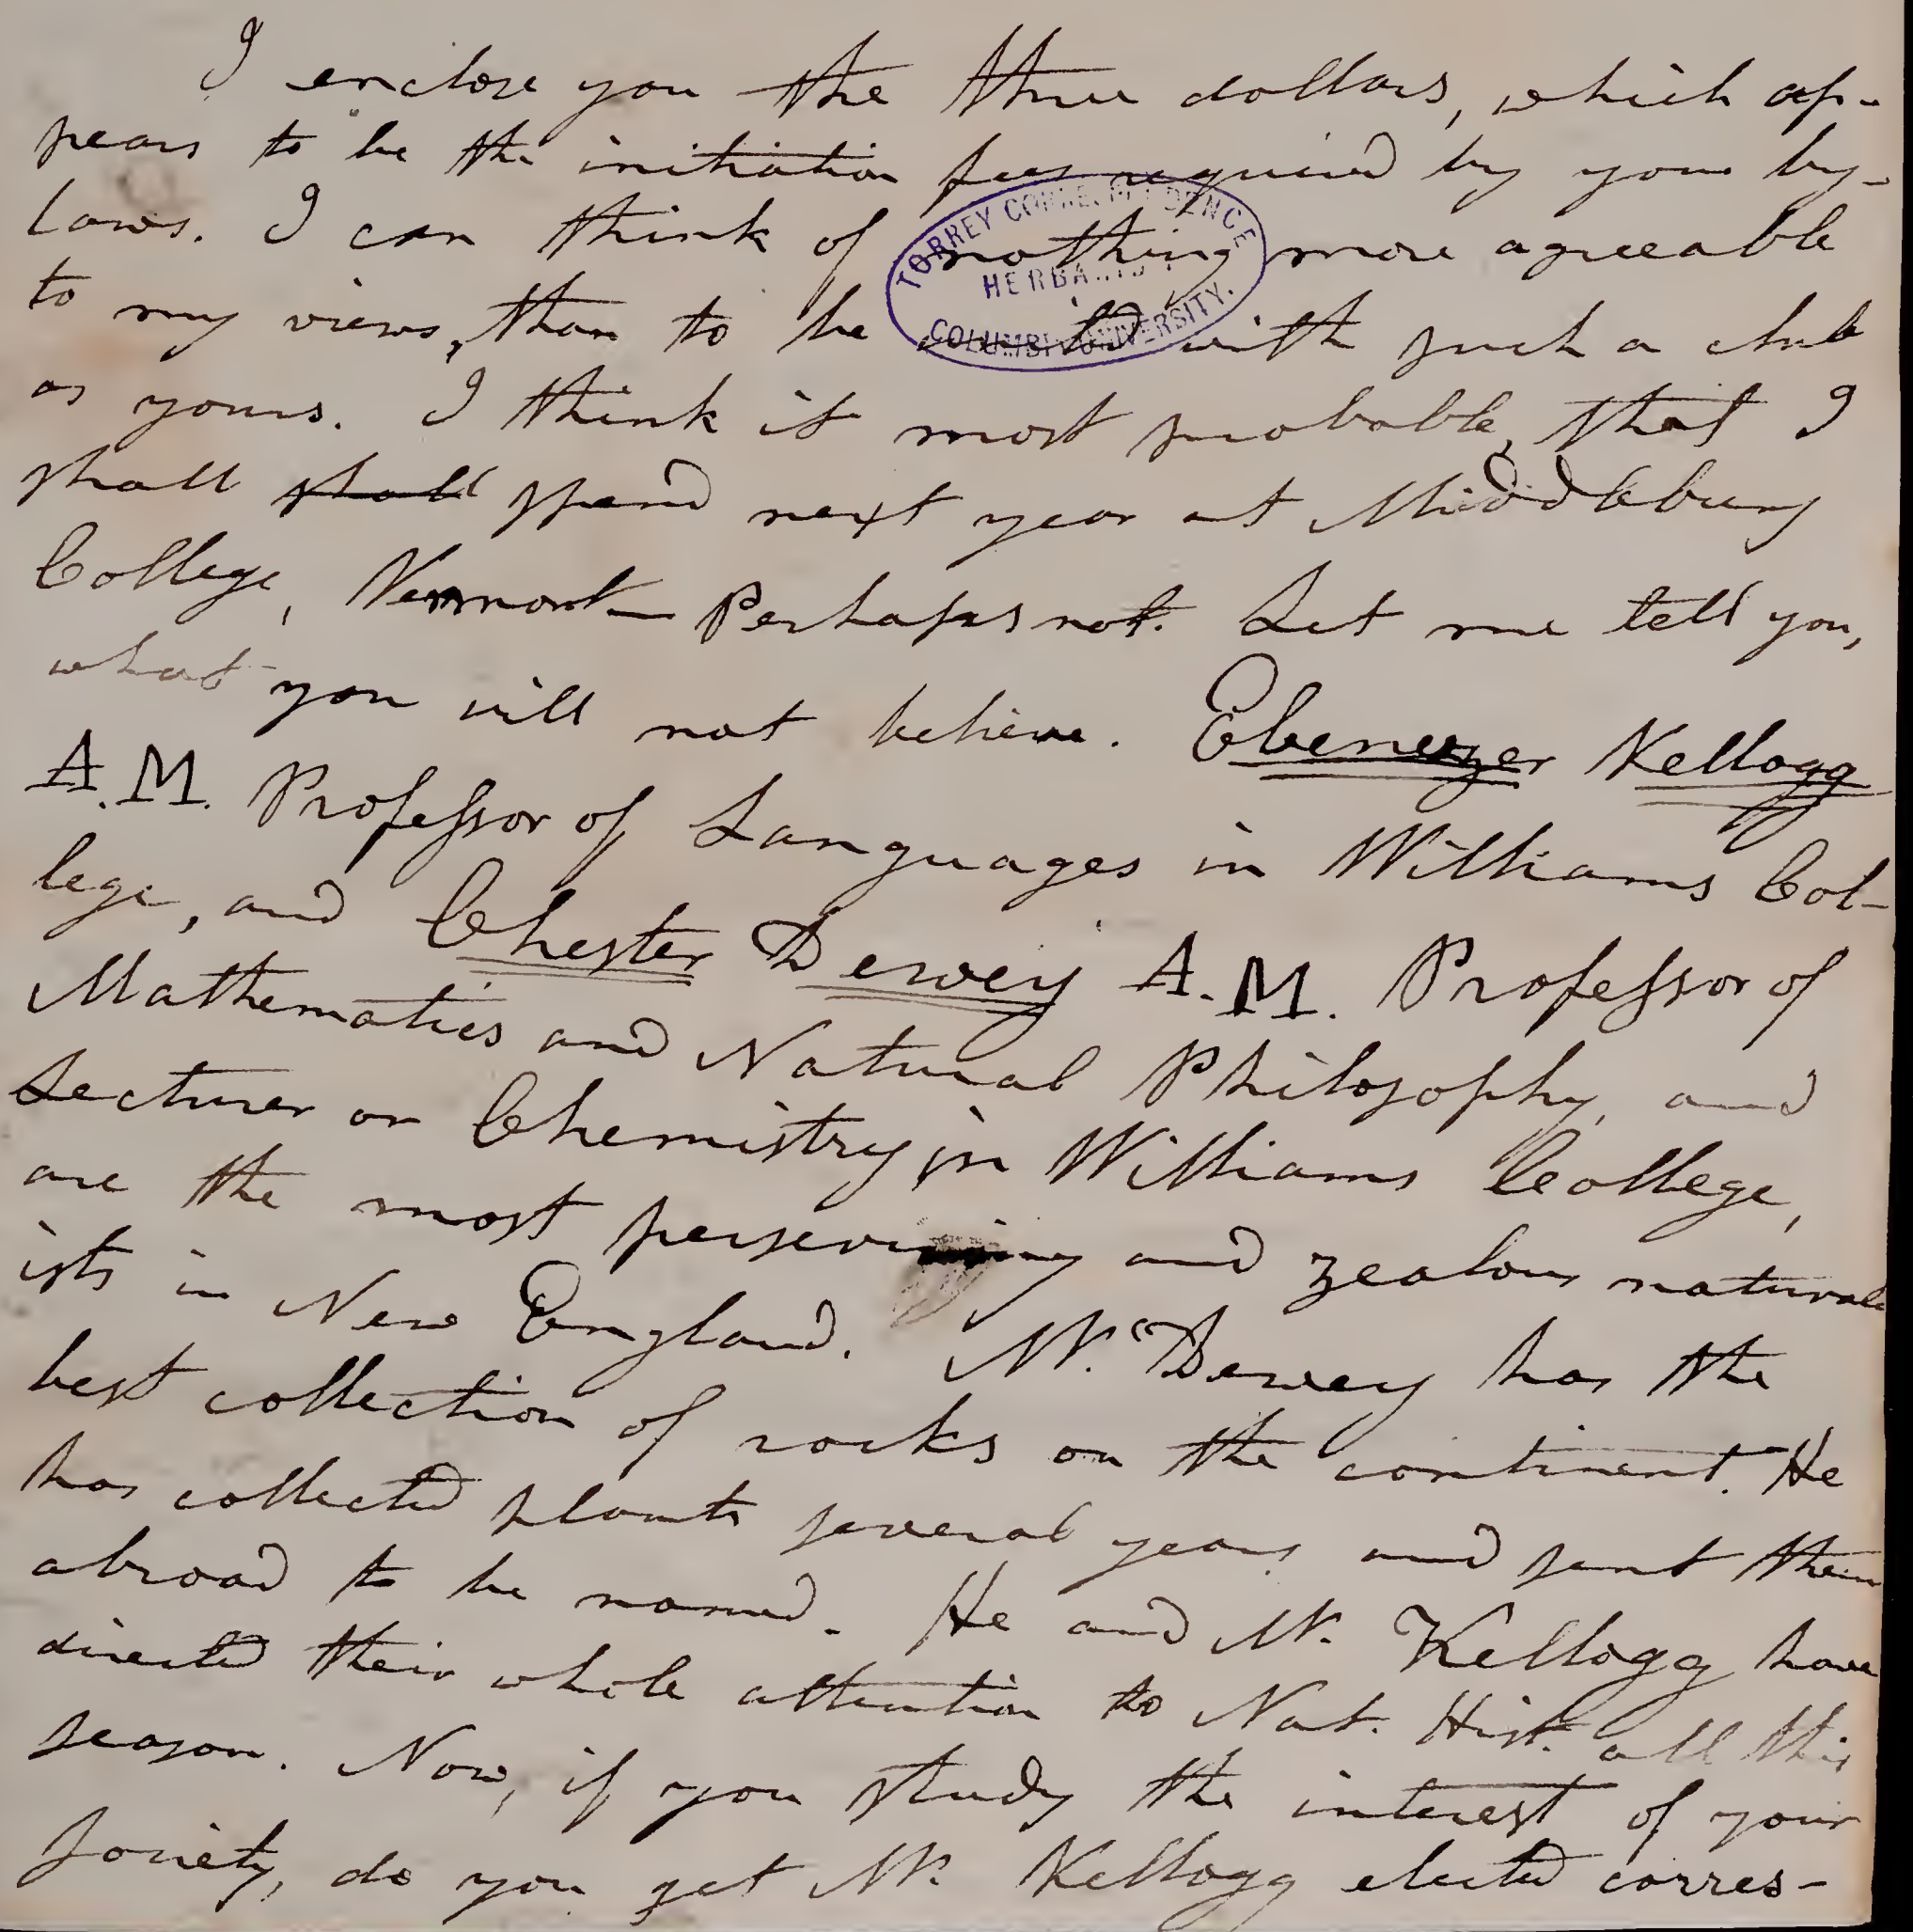 I enclose you the three dollars, which ap-
pears to be the initiation fees required by your by-
laws. I can think of nothing more agreeable
to my views, than to be with such a club
as yours. I think it most probable, that I
shall shall spend next year at Middlebury
College, Vermont— Perhaps not. Let me tell you,
what you will not believe. Ebenezer Kellogg
A.M. Professor of Languages in Williams Col-
lege, and Chester Dewey A.M. Professor of
Mathematics and Natural Philosophy, and
Lecturer on Chemistry in Williams College,
are the most persevering and zealous natural-
ists in New England. Mr. Dewey has the
best collection of rocks on the continent. He
has collected plants several years and sent them
abroad to be named. He and Mr. Kellogg have
directed their whole attention to Nat. Hist. all this
season. Now, if you study the interest of your
Society, do you get Mr. Kellogg elected corres-
TORREY CORRESPONDENCE
HERBARIUM
COLUMBIA UNIVERSITY.